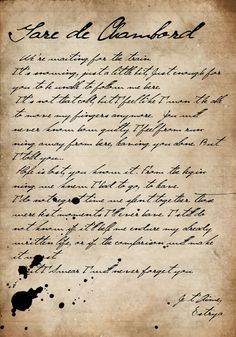 Gare de Chambord
We're waiting for the train
It's snowing, just a little bit, just enough for
you to be unable to follow me here.
It's not that cold, but I feel like I won't be able
to move my fingers anymore. You will
never know how guilty I feel from run
ning away from here, leaving you alone. But
I told you...
Hope is lost, you know it. From the begin
ning we knew I had to go, to leave.
I do not regret time we spent together. Those
were best moments I'll ever have. I still do
not know if it'll help me endure my dreary
written life, or if the comparison will make
it worst
But I swear I will never forget you
Je t'aime,